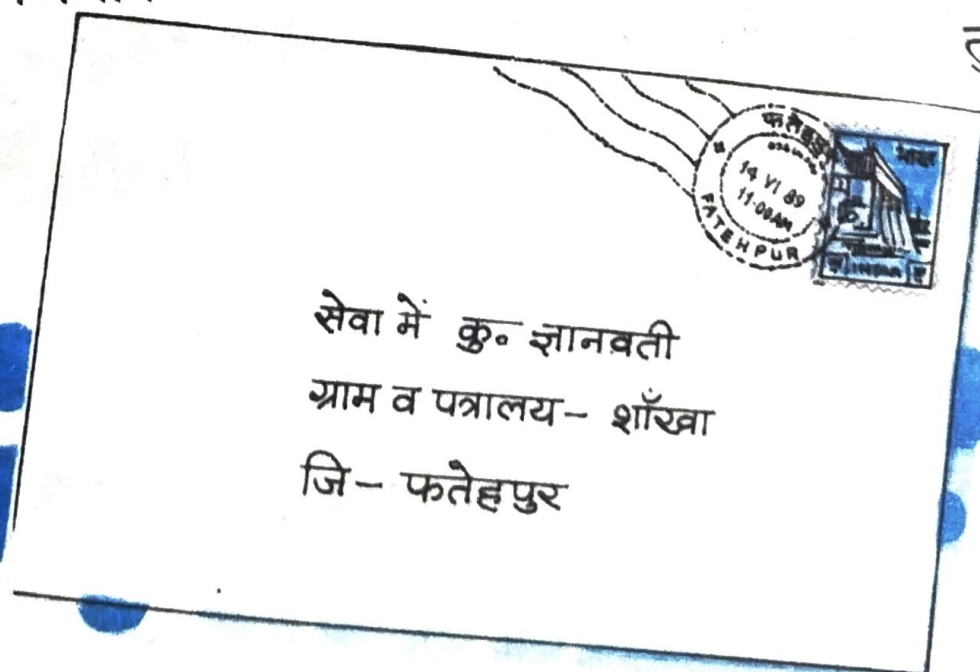 फतेहपुर
14 VI 89
11·00AM
FATEHPUR
भारत
INDIA
सेवा में कु० ज्ञानवती
ग्राम व पत्रालय- शाँखा
जि- फतेहपुर